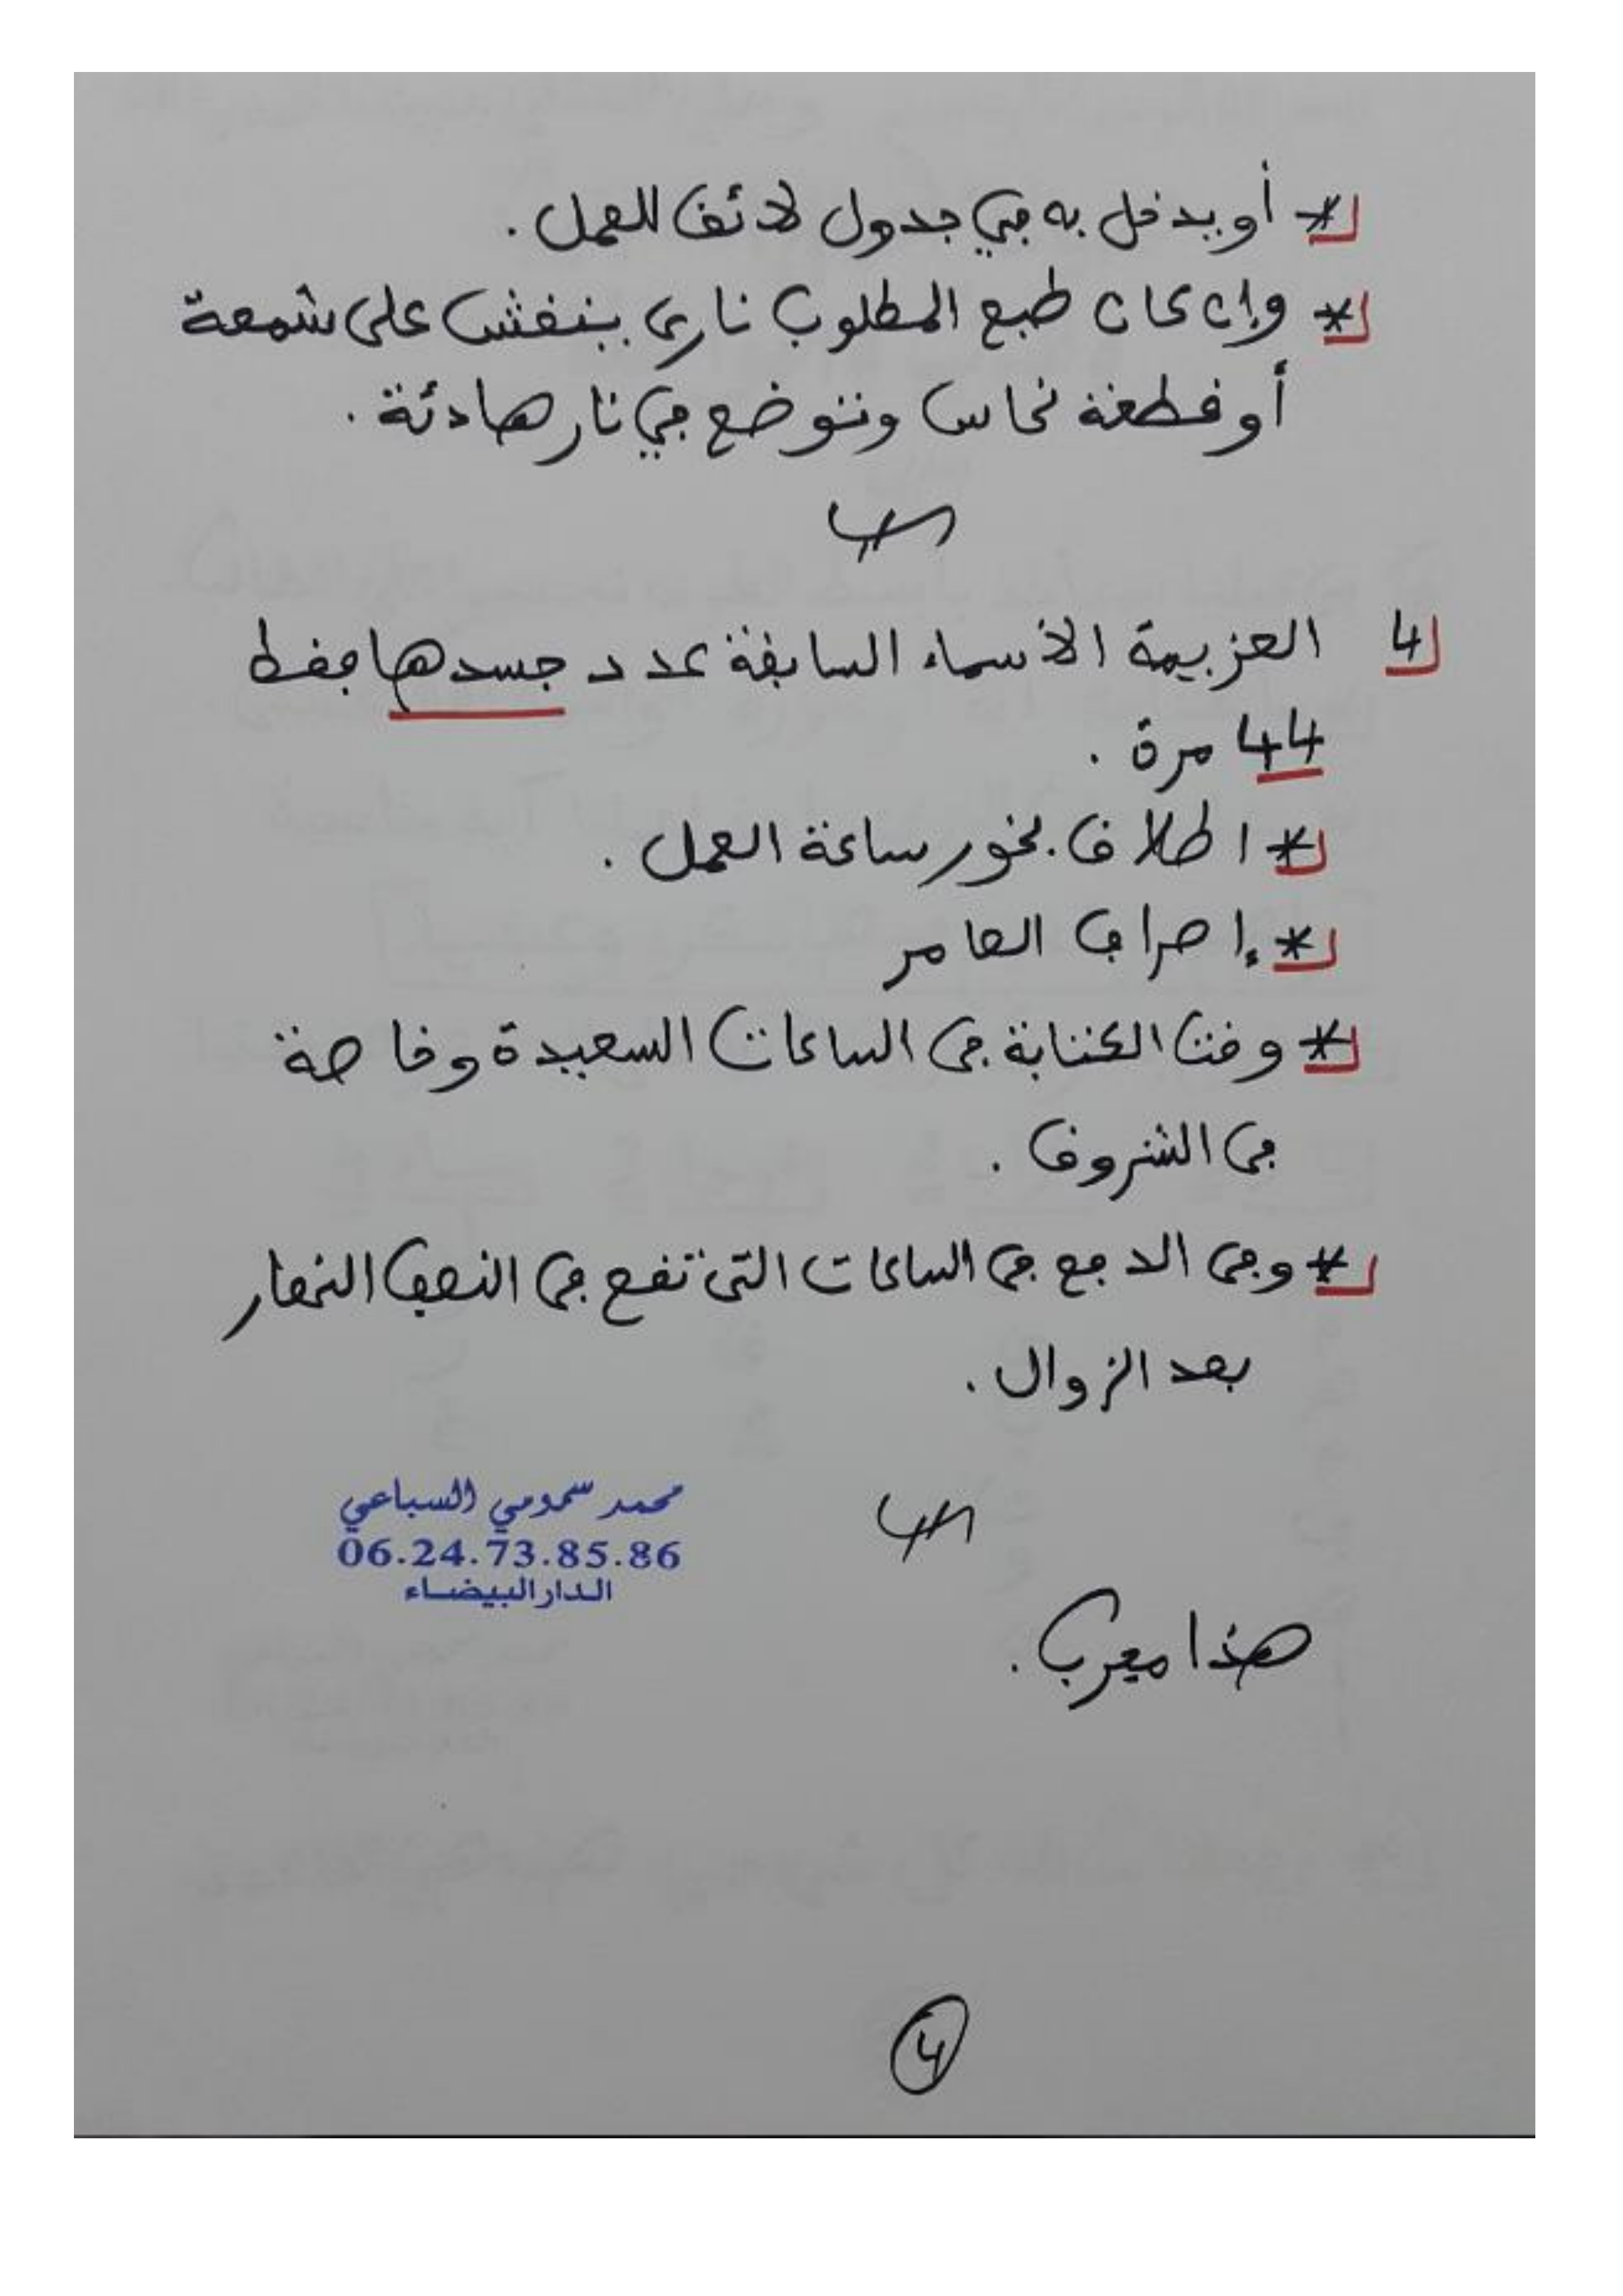 * أو يدخل به في جدول لائق للعمل.
* وإن كان طبع المطلوب ناري ينقش على شمعة
أو قطعة نحاس وتوضع في نار هادئة.
4 العزيمة الأسماء السابقة عدد جسدها فقط
44 مرة.
* اطلاق بخور ساعة العمل.
* إصراف العامر
* وقت الكتابة في الساعات السعيدة وخاصة
في الشروق.
* وفي الدفع في الساعات التي تقع في النصف النهار
بعد الزوال.
محمد سمومي السباعي
06.24.73.85.86
الدار البيضاء
هذا معرب.
4